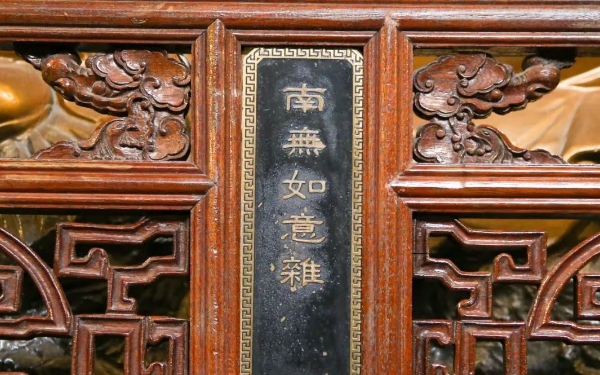 南無如意雜